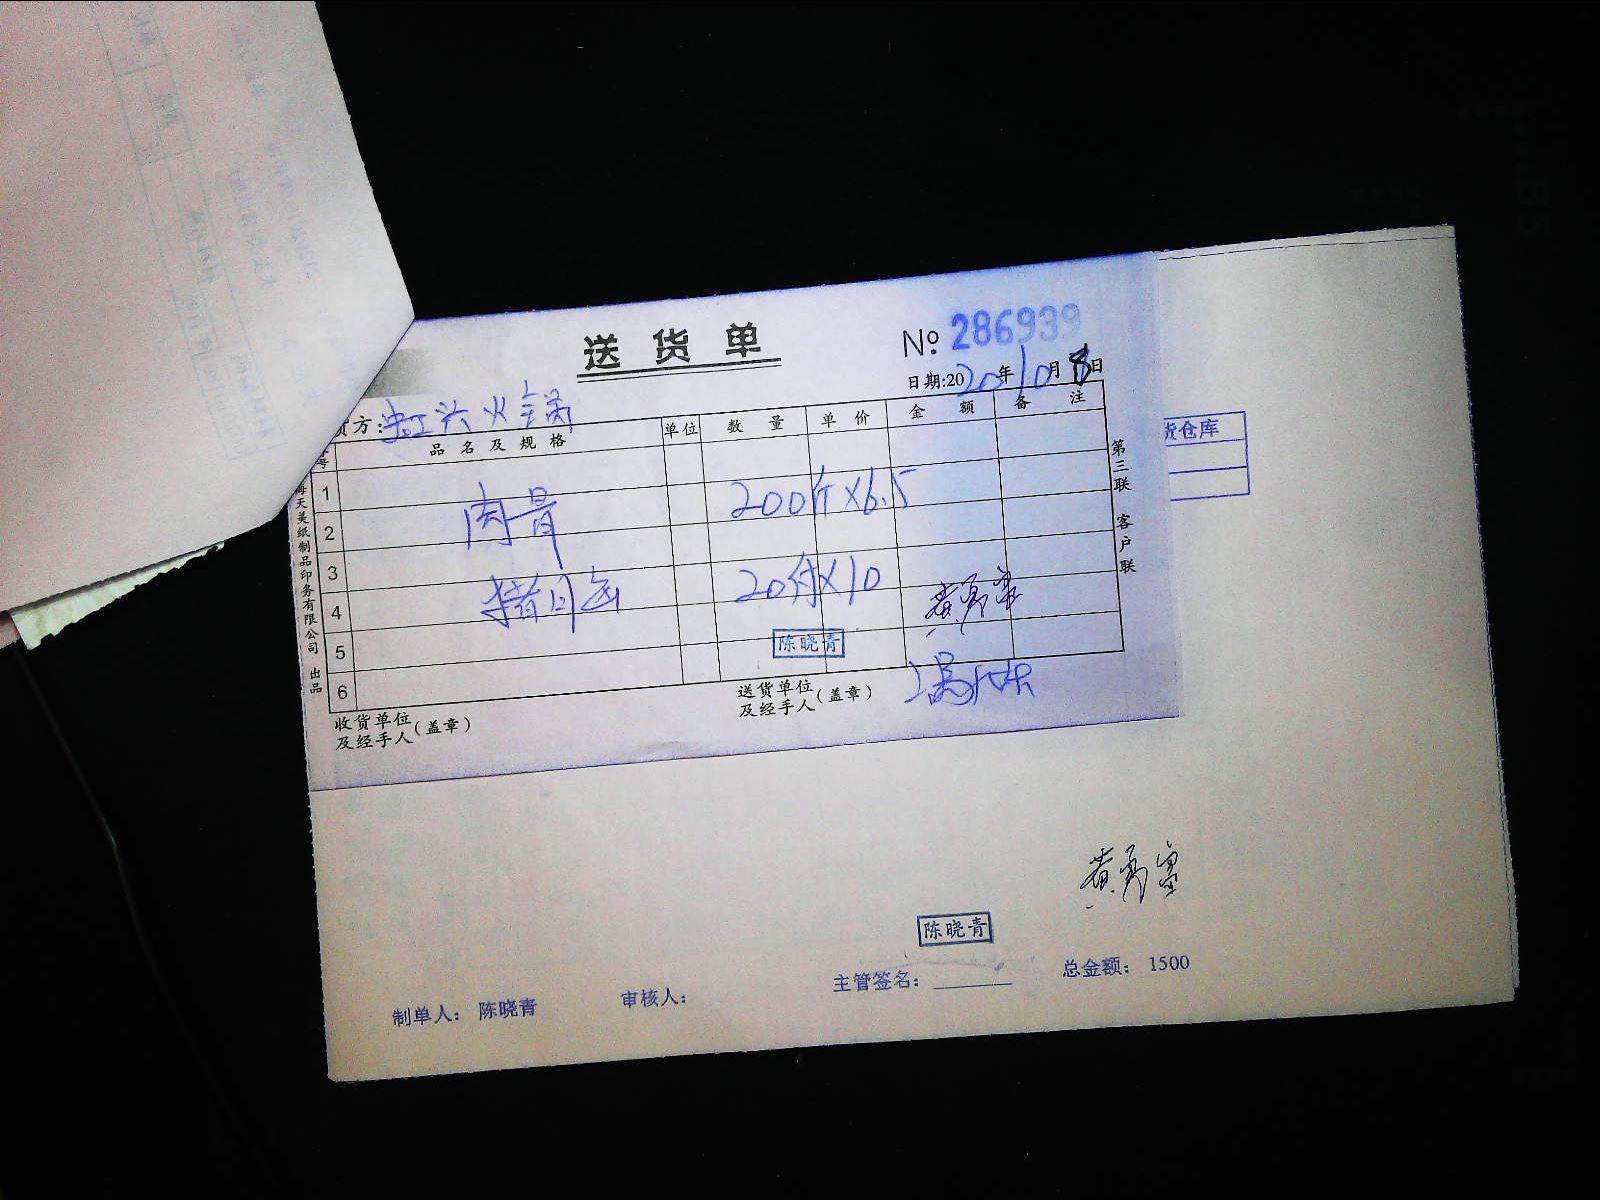 送货单
№ 286939
日期:2020年10月8日
货方:虹兴火锅
号 品名及规格 单位 数量 单价 金额 备注
1
2 肉骨 200斤×6.5
3
4 猪 20付×10
5 陈晓青
6
收货单位及经手人(盖章)
送货单位及经手人(盖章)
第三联 客户联
海天美纸制品印务有限公司 出品
货仓库
陈晓青
制单人: 陈晓青 审核人: 主管签名: 总金额: 1500